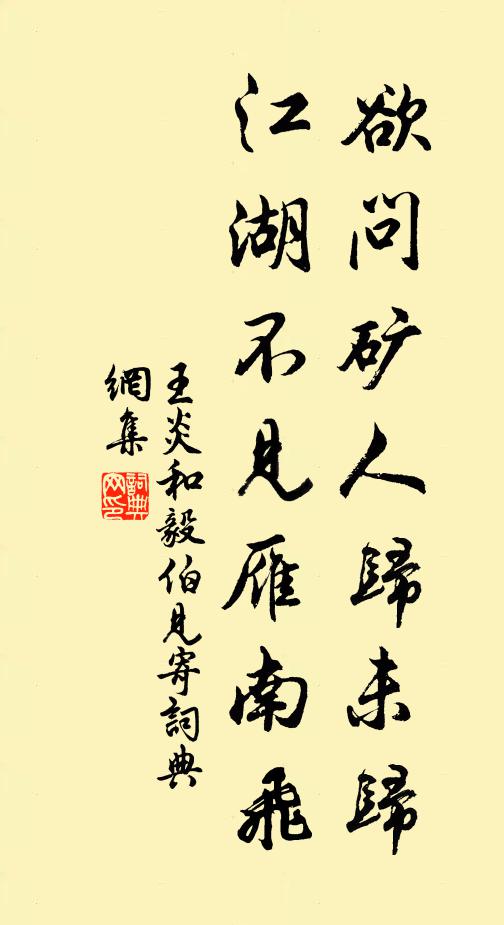 欲问矿人歸未歸
江湖不見雁南飛
王炎和毅伯見寄詞典
網集
詞典
网印